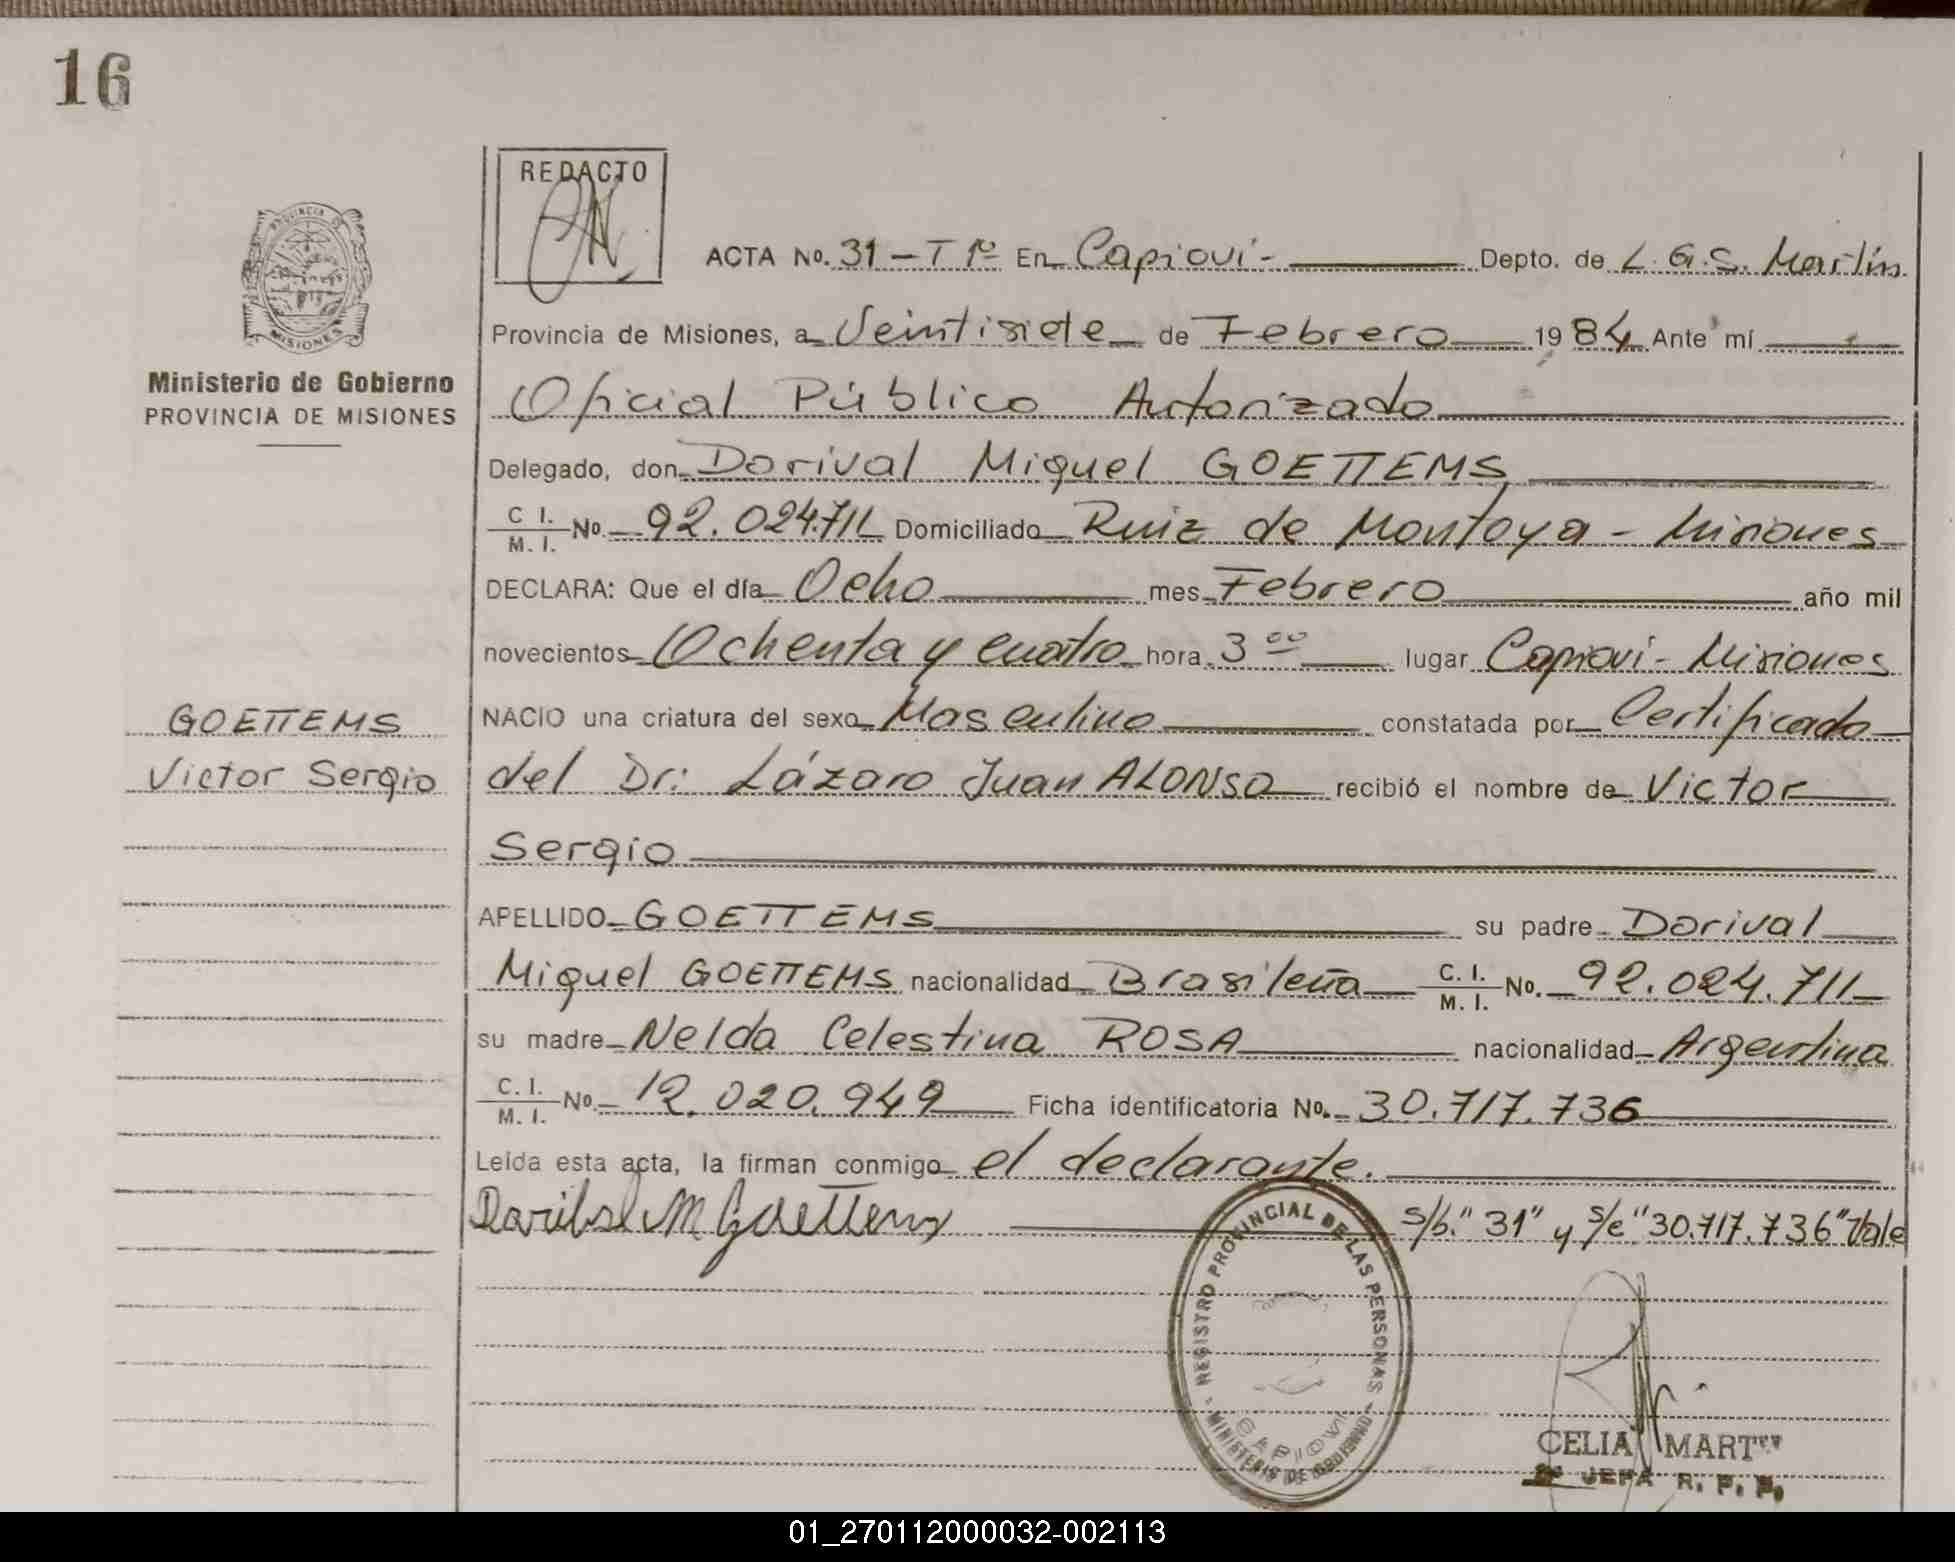 16
REDACTO
PROVINCIA DE
MISIONES
Ministerio de Gobierno
PROVINCIA DE MISIONES
ACTA No. 31 – T 1º En Capioví - Depto. de L. G. S. Martín
Provincia de Misiones, a Veintisiete de Febrero 1984 Ante mí
Oficial Público Autorizado
Delegado, don Dorival Miguel GOETTEMS
C. I. M. I. No. 92.024.711 Domiciliado Ruiz de Montoya - Misiones
DECLARA: Que el día Ocho mes Febrero año mil
novecientos Ochenta y cuatro hora 3 00 lugar Capioví - Misiones
NACIO una criatura del sexo Masculino constatada por Certificado
del Dr: Lázaro Juan ALONSO recibió el nombre de Victor
Sergio
GOETTEMS
Victor Sergio
APELLIDO GOETTEMS su padre Dorival
Miguel GOETTEMS nacionalidad Brasileña C. I. M. I. No. 92.024.711
su madre Nelda Celestina ROSA nacionalidad Argentina
C. I. M. I. No. 12.020.949 Ficha identificatoria No. 30.717.736
Leída esta acta, la firman conmigo el declarante.
Dorival M Goettems s/b. "31" y s/e "30.717.736" Vale
REGISTRO PROVINCIAL DE LAS PERSONAS
CAPIOVI
MINISTERIO DE GOBIERNO
CELIA
JEFA R. P. P.
01_270112000032-002113